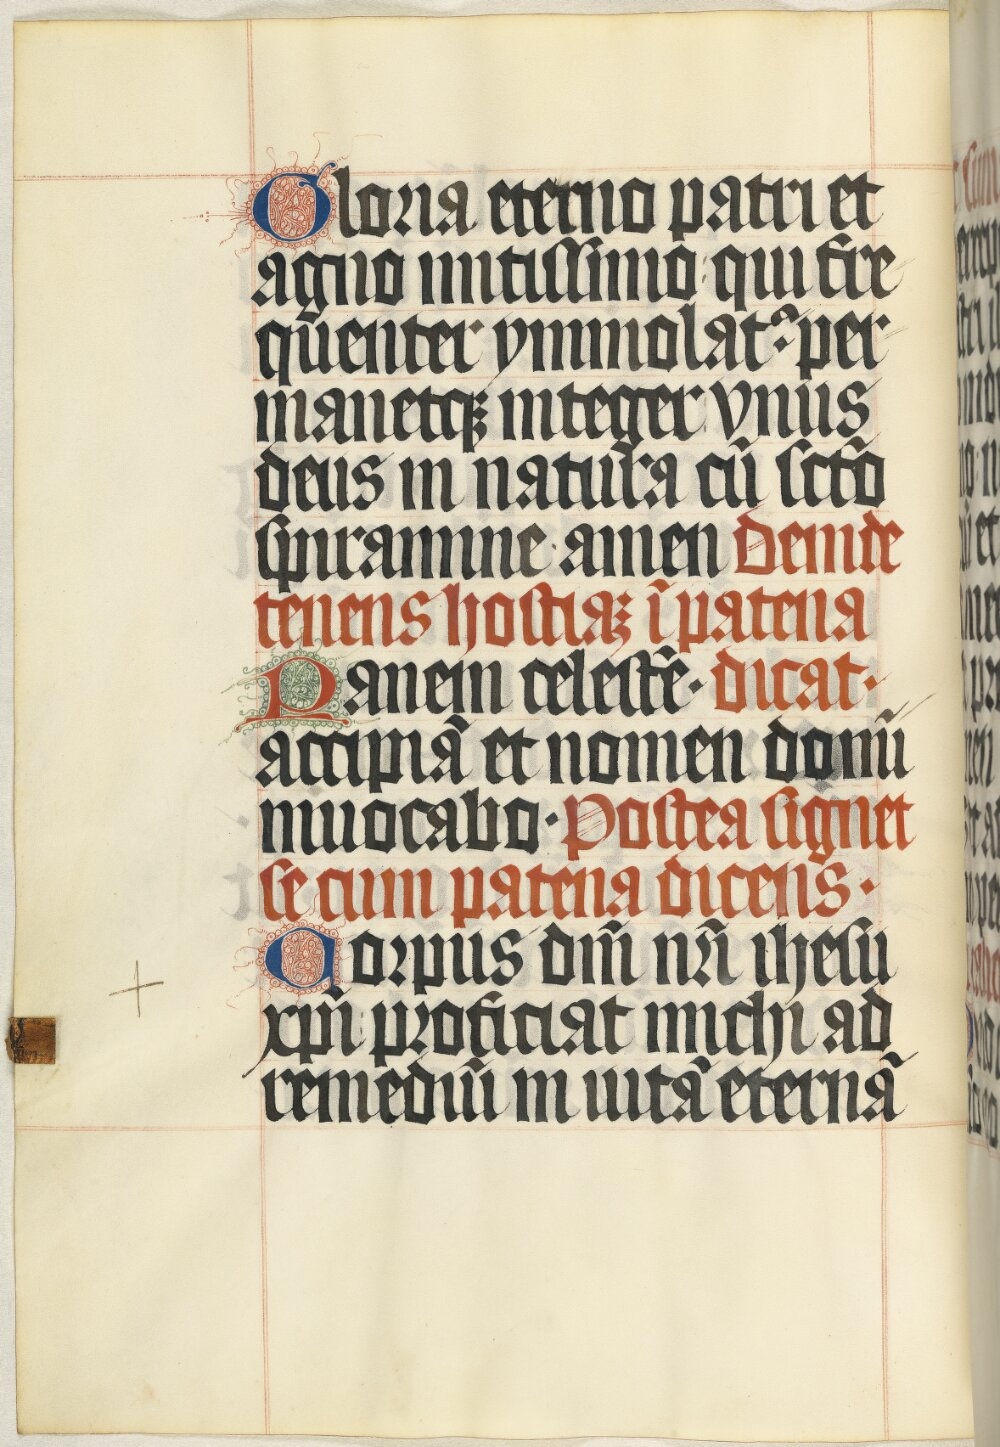 Gloria eterno patri et
agno mitissimo qui fre
quenter ymmolat᷒ per
manetqꝫ integer vnus
deus in natura cū sctō
spiramine amen Deinde
tenens hostiaꝫ ī patena
Panem celestē· dicat·
accipiā et nomen domī
inuocabo· Postea signet
se cum patena dicens·
Corpus dnī nrī ihesu
xpī proficiat michi ad
remediū in uitā eternā